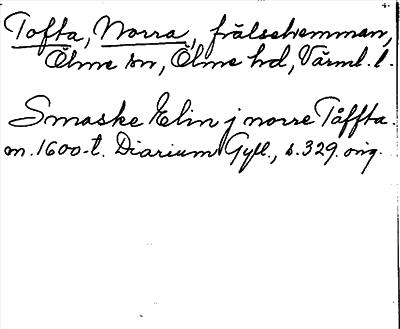 4.
Tofta, Norra, frälsehemman,
Ölme sn, Ölme hd, Värml. l.
Smaske Elin j norre Tåffta.
m. 1600-t. Diarium Gyll., s. 329. orig.